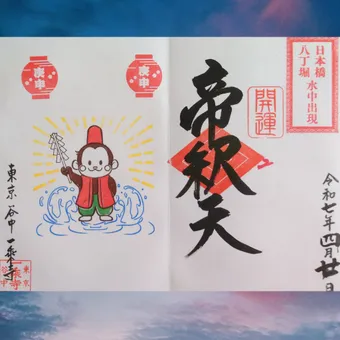 日本橋
八丁堀
水中出現
開運
帝釈天
令和七年四月廿日
庚申
庚申
東京 谷中 一乗寺
東京
谷中
一乗寺